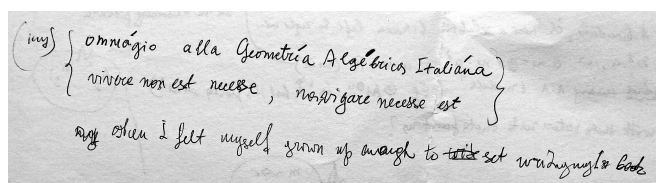 (ins) { ommágio alla Geometría Algébrica Italiána
vivere non est necesse, navigare necesse est }
when I felt myself grown up enough to set